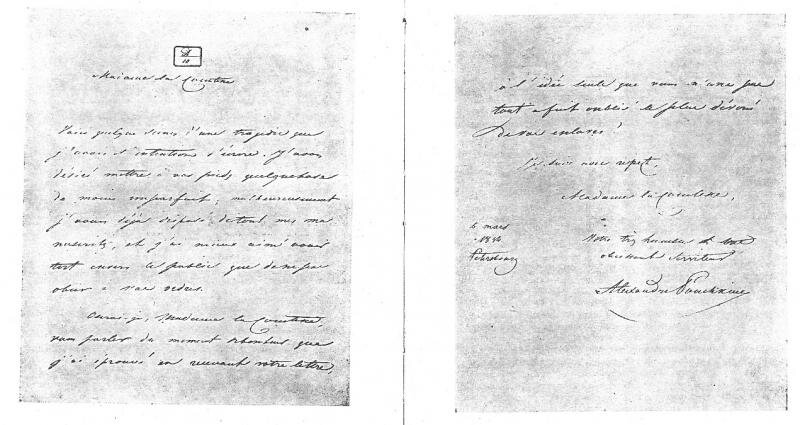 10
Madame la Comtesse
Voici quelques scènes d'une tragédie que
j'avais l'intention d'écrire. J'avais
désiré mettre à vos pieds quelque chose
de moins imparfait; malheureusement
j'avais déjà disposé de tous mes ma
nuscrits, et j'ai mieux aimé avoir
tort envers le public que de ne pas
obéir à vos ordres.
Oserai-je, Madame la Comtesse,
vous parler du moment de bonheur que
j'ai éprouvé en recevant votre lettre,
à l'idée seule que vous n'avez pas
tout à fait oublié le plus dévoué
de vos esclaves?
Je suis avec respect,
Madame la Comtesse,
mars
Pétersbourg
Votre très humble et très
obéissant serviteur
Alexandre Pouchkine